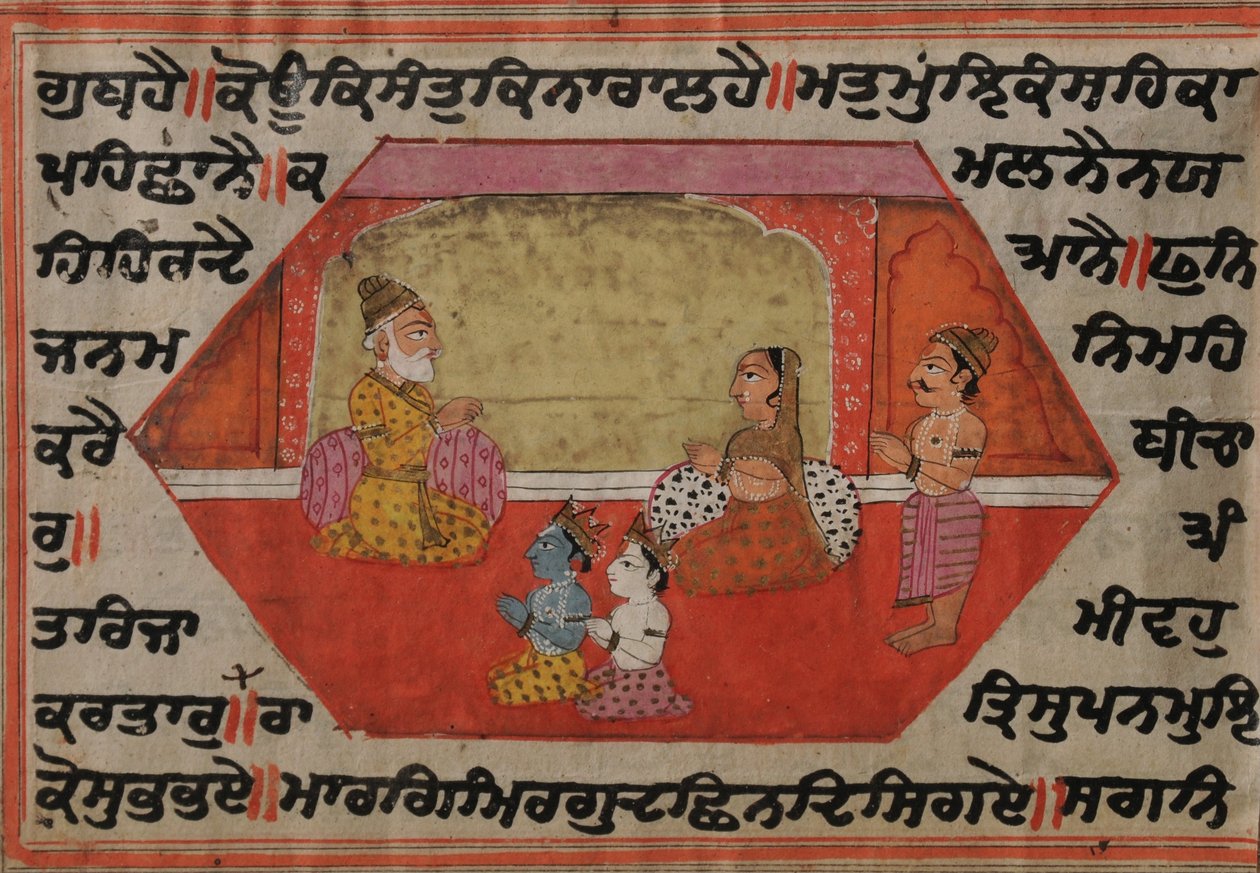 ਕੋਊਕਿਸੰਤੁਕਿਨਾਰਾਲਹੈ॥ਮਤੁਮੁਾਇਕੰਸਹਿਕਾ
ਪਹਿਛਾਨੈ॥ਕ ਮਲਨੈਨਯ
ਹਿਹਿਰਦੈ ਆਨੈ॥ਫੁਨਿ
ਜਨਮ ਨਿਮਹਿ
ਕਰੈ ਬੀਚਾ
ਰੁ॥ ਅੰ
ਤਰਿਜਾ ਮੀਵਹੁ
ਕਰਤਾਰੁ॥ਰਾ ਤ੍ਰਿਸੁਪਨਮੁਇ
ਕੋਸੁਭਭਏ॥ਮਾਰਗਿਮਿਰਗੁਦਛਿਨਦਿਸਿਗਏ॥ਸਗਨਿ